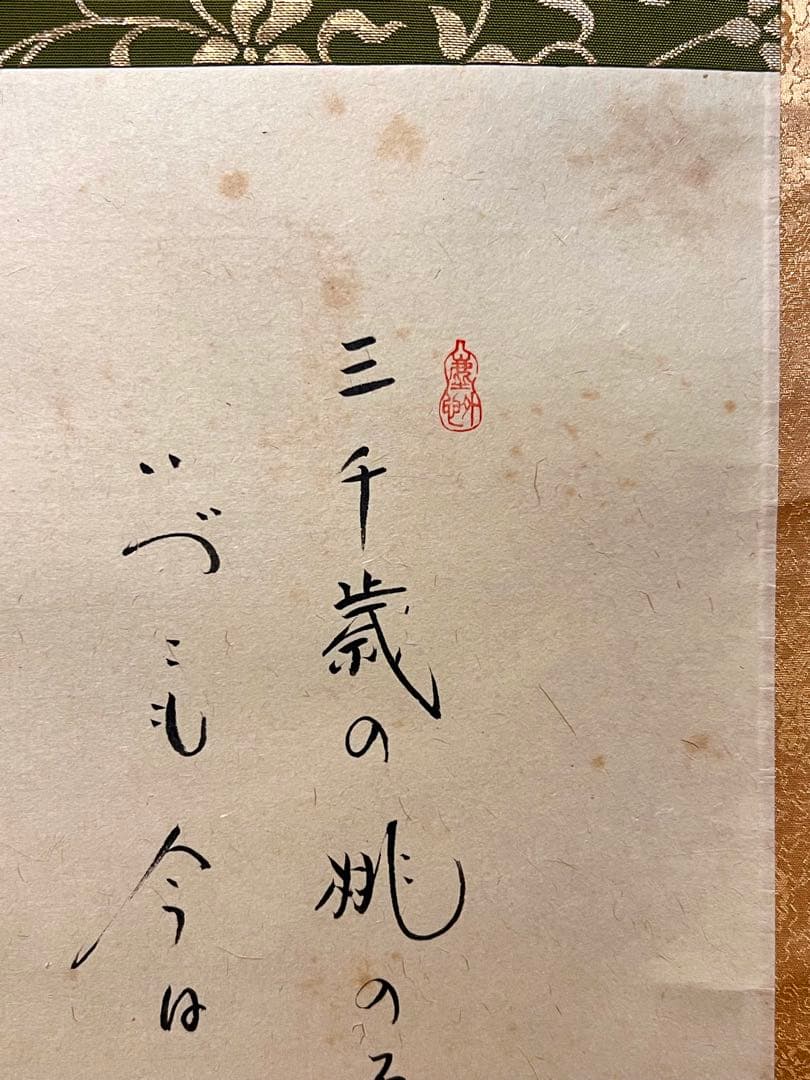 三千歳の桃の
いづこも今は